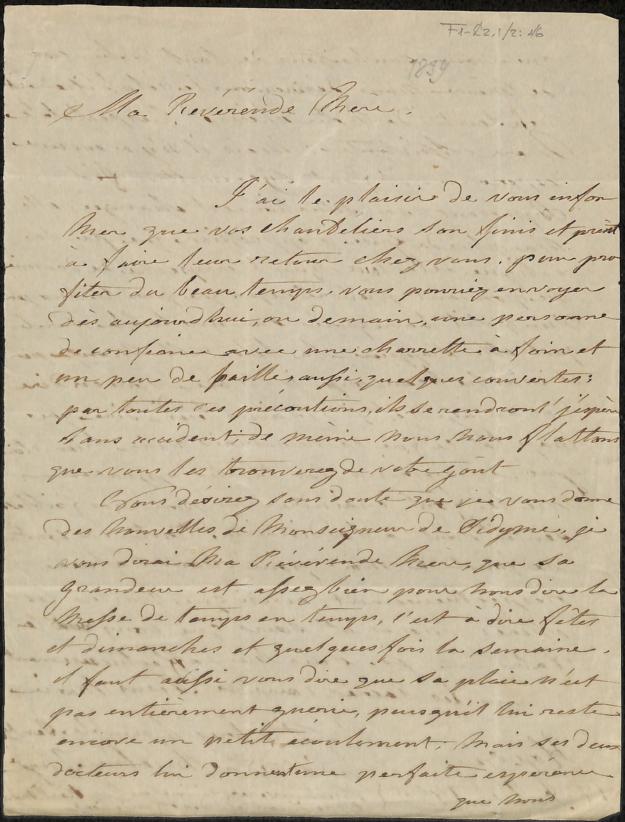 F1-22,1/2:46
1839
Ma Révérende Mere.
J'ai le plaisir de vous infor
mer que vos chandeliers son finis et prèst
à faire leur retour chez vous. pour pro
fiter du beau temps, vous pouriez envoyer
dès aujourd'hui, ou demain, une personne
de confiance avec une charrette à foin et
un peu de paille, aussi quelques couvertes:
par toutes ces précoutions, ils se rendront j'espère
sans accident, de mème nous nous flattons
que vous les trouverez de votre goût
Vous désirez sans doute que je vous donne
des nouvelles de Monseigneur de Sidyme, je
vous dirai Ma Révérende Mere, que sa
grandeur est assez bien pour nous dire la
Messe de temps en temps, c'est à dire fêtes
et dimanches et quelques fois la semaine.
il faut aussi vous dire que sa plaie n'est
pas entièrement guerie, puisqu'il lui reste
encore un petit écoulement. Mais ses deux
docteurs lui donnent une perfaite esperence
que nous